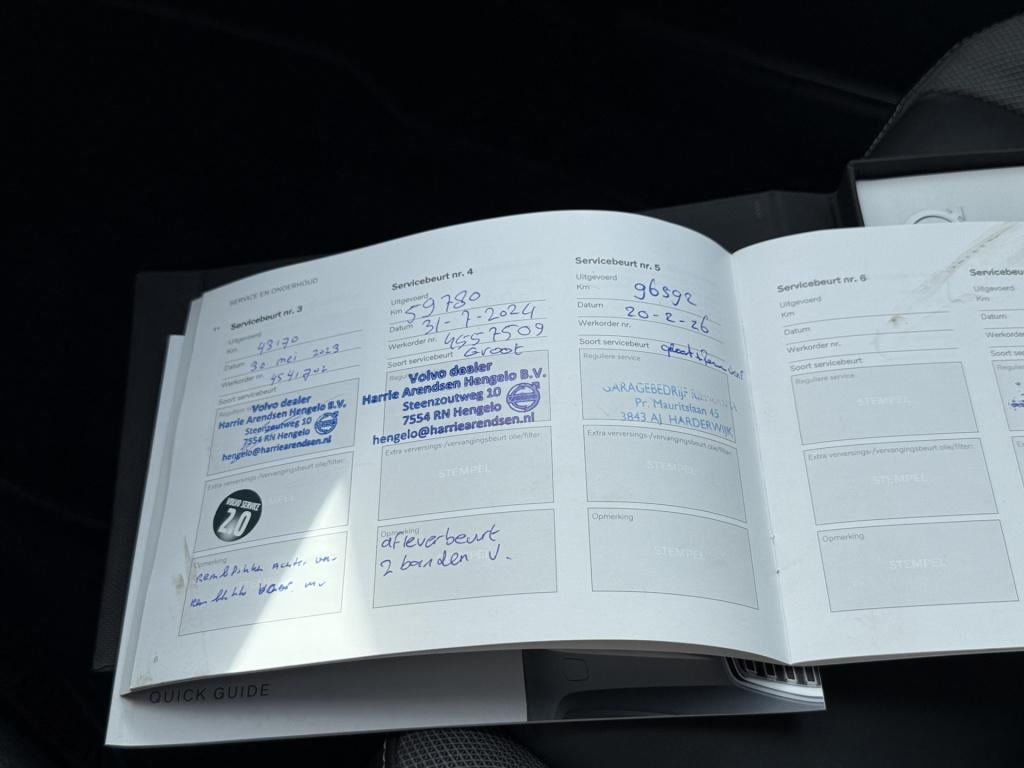 SERVICE EN ONDERHOUD
Servicebeurt nr. 3
Uitgevoerd
Km 43170
Datum 30 mei 2023
Werkorder nr.
Soort servicebeurt
Volvo dealer
Harrie Arendsen Hengelo B.V.
Steenzoutweg 10
7554 RN Hengelo
hengelo@harriearendsen.nl
Extra verversings-/vervangingsbeurt olie/filter:
STEMPEL
VOLVO SERVICE
2.0
Opmerking
6
Servicebeurt nr. 4
Uitgevoerd
Km 59780
Datum 31-7-2024
Werkorder nr. 4557509
Soort servicebeurt Groot
Volvo dealer
Harrie Arendsen Hengelo B.V.
Steenzoutweg 10
7554 RN Hengelo
hengelo@harriearendsen.nl
Extra verversings-/vervangingsbeurt olie/filter:
STEMPEL
Opmerking
afleverbeurt
2 banden V.
Servicebeurt nr. 5
Uitgevoerd
Km 96592
Datum 20-2-26
Werkorder nr.
Soort servicebeurt
Reguliere service
GARAGEBEDRIJF
Pr. Mauritslaan 45
3843 AJ HARDERWIJK
Extra verversings-/vervangingsbeurt olie/filter:
STEMPEL
Opmerking
STEMPEL
Servicebeurt nr. 6
Uitgevoerd
Km
Datum
Werkorder nr.
Soort servicebeurt
Reguliere service
STEMPEL
Extra verversings-/vervangingsbeurt olie/filter:
STEMPEL
Opmerking
STEMPEL
Uitgevoerd
Km
Datum
QUICK GUIDE